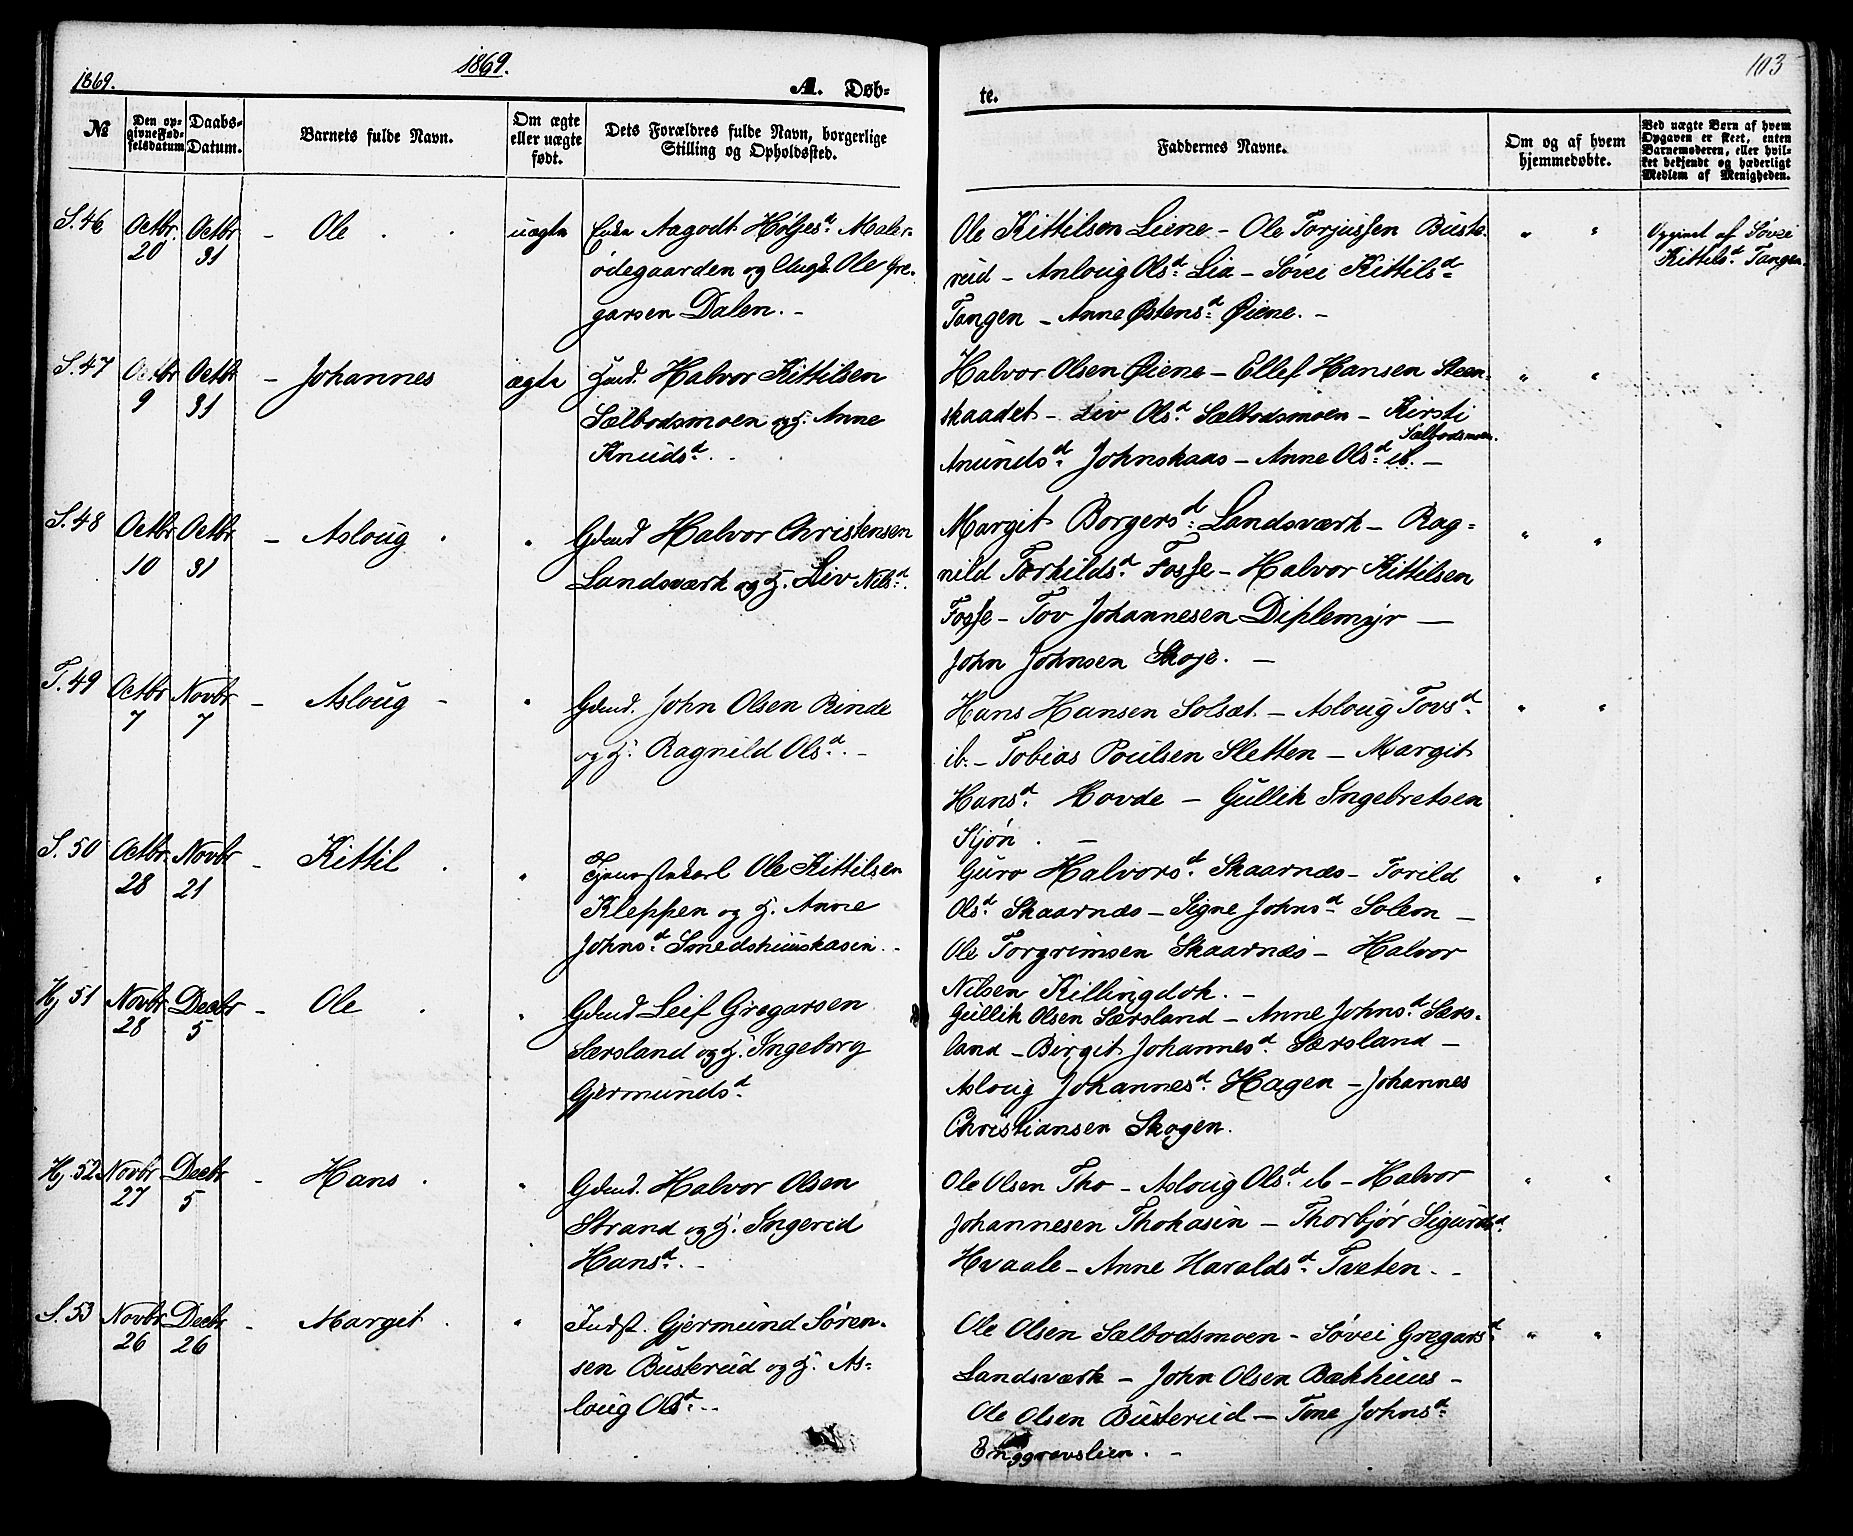 1869.
1869.
A. Døb-
te.
103
№
Den op-
givne Fød-
selsdatum
Daabs-
Datum.
Barnets fulde Navn.
Om ægte
eller uægte
født.
Dets Forældres fulde Navn, borgerlige
Stilling og Opholdssted.
Faddernes Navne.
Om og af hvem
hjemmedøbte.
Ved uægte Børn af hvem
Opgaven er skeet, enten
Barnemoderen, eller hvil-
ket bekjendt og hæderligt
Medlem af Menigheden.
S. 46
Octbr.
20
Octbr
31
- Ole .
uægte
Enke Aagodt Holjesd. Maler-
ødegaarden og Ungk. Ole Gre-
garsen Dalen. -
Ole Kittilsen Liene - Ole Torjussen Buste-
rud - Anloug Olsd. Lia - Søvei Kittilsd.
Tangen - Anne Østensd. Øiene. -
" "
Opgivet af Søvei
Kittilsd. Tangen.
S. 47
Octbr
9
Octbr
31
- Johannes
ægte
Huusm. Halvor Kittilsen
Sælbodsmoen og H. Anne
Knudsd. .
Halvor Olsen Øiene - Ellef Hansen Steen-
skaadet - Liv Olsd. Sælbodsmoen - Kirsti
Sælbodsmoen.
Anundsd. Johnskaas - Anne Olsd. ib. -
" "
S. 48
Octbr
10
Octbr
31
- Asloug .
"
Gdmd Halvor Christensen
Landsværk og H. Liv Nilsd.
Margit Borgersd. Landsværk - Rag-
nild Torkildsd. Fosse - Halvor Kittilsen
Fosse - Tov Johannesen Diplemyr -
John Johnsen Skoje. -
" "
T. 49
Octbr
7
Novbr
7
- Asloug -
"
Gdmd. John Olsen Rinde
og H. Ragnild Olsd. -
Hans Hansen Solsæt - Asloug Tovsd.
ib. - Tobias Poulsen Sletten - Margit
Hansd. Hovde - Gullik Ingebretsen
Kjøn . -
" "
S. 50
Octbr
28
Novbr
21
- Kittil .
"
Tjenestekarl Ole Kittilsen
Kleppen og H. Anne
Johnsd. Smedshuuskasin. -
Guro Halvorsd. Skaarnæs - Torild
Olsd. Skaarnæs - Signe Johnsd. Solem -
Ole Torgrimsen Skaarnæs - Halvor
Nilsen Killingdok. -
" "
Hj 51
Novbr
28
Decbr
5
- Ole .
"
Gdmd Leif Gregarsen
Særsland og H. Ingeborg
Gjermundsd.
Gullik Olsen Særsland - Anne Johnsd. Særs-
land - Birgit Johannesd. Særsland -
Asloug Johannesd. Hagen - Johannes
Christiansen Skogen.
Hj. 52
Novbr
27
Decbr
5
- Hans .
"
Gdmd. Halvor Olsen
Strand og H. Ingerid
Hansd. -
Ole Olsen Tho - Asloug Olsd. ib - Halvor
Johannesen Thokasin - Thorbjør Sigurdsd.
Hvaale - Anne Haraldsd. Tveten. -
" "
S. 53
Novbr
26
Decbr
26
- Margit .
"
Inderst. Gjermund Søren-
sen Busterud og H. As-
loug Olsd. -
Ole Olsen Sælbodsmoen - Søvei Gregarsd.
Landsværk - John Olsen Bækhuus -
Ole Olsen Busterud - Tone Johnsd.
Enggravslien. -
" "